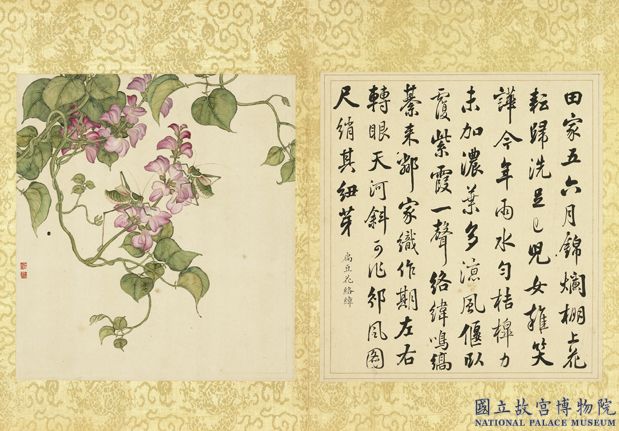 田家五六月錦爛棚上花
耘歸洗足已兒女雜笑
譁今年雨水勻桔槔力
未加濃葉多涼風偃臥
覆紫霞一聲絡緯鳴縞
綦來鄰家織作期左右
轉眼天河斜可作邠風圖
尺綃其紐芽
扁豆花絡緯
國立故宮博物院
NATIONAL PALACE MUSEUM